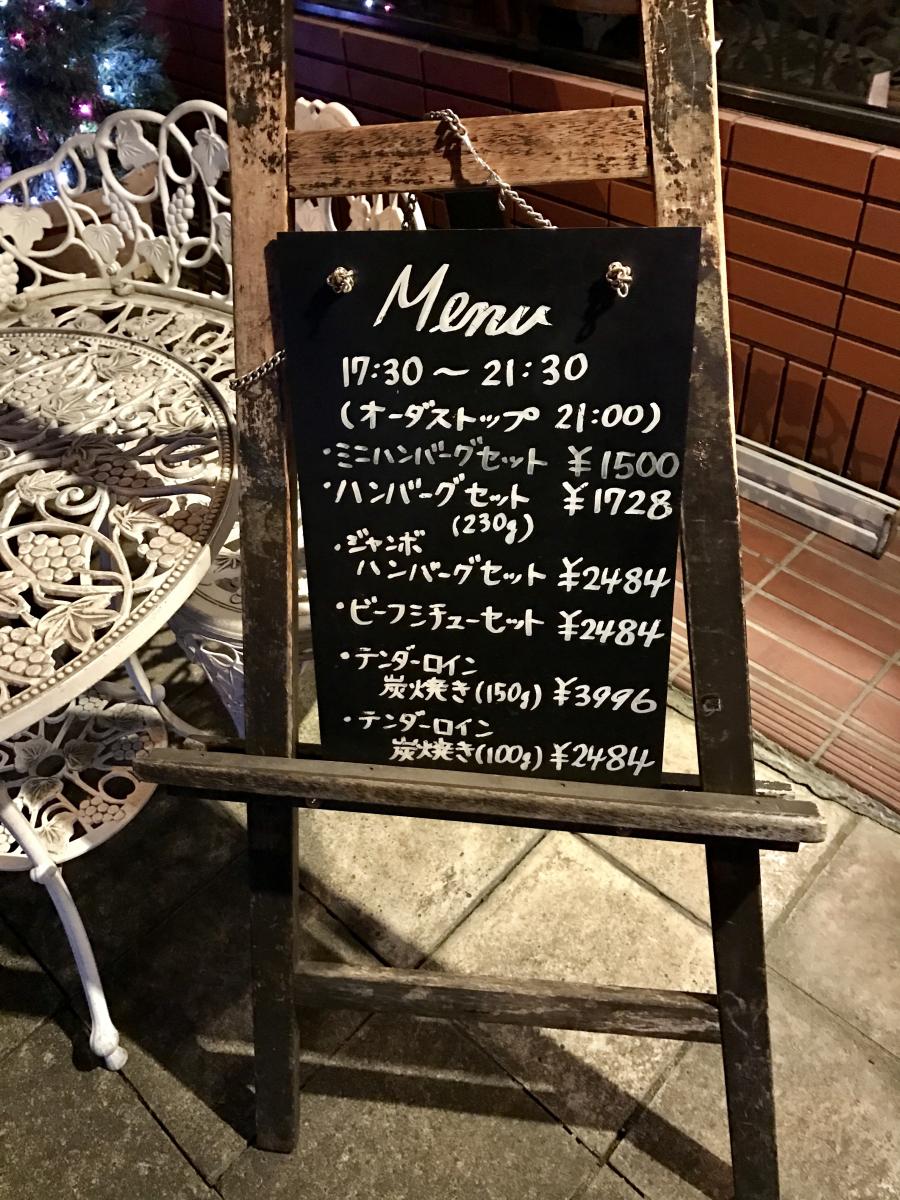 Menu
17:30 〜 21:30
(オーダストップ 21:00)
・ミニハンバーグセット ¥1500
・ハンバーグセット ¥1728
(230g)
・ジャンボ
ハンバーグセット ¥2484
・ビーフシチューセット ¥2484
・テンダーロイン
炭火焼き(150g) ¥3996
・テンダーロイン
炭火焼き(100g) ¥2484